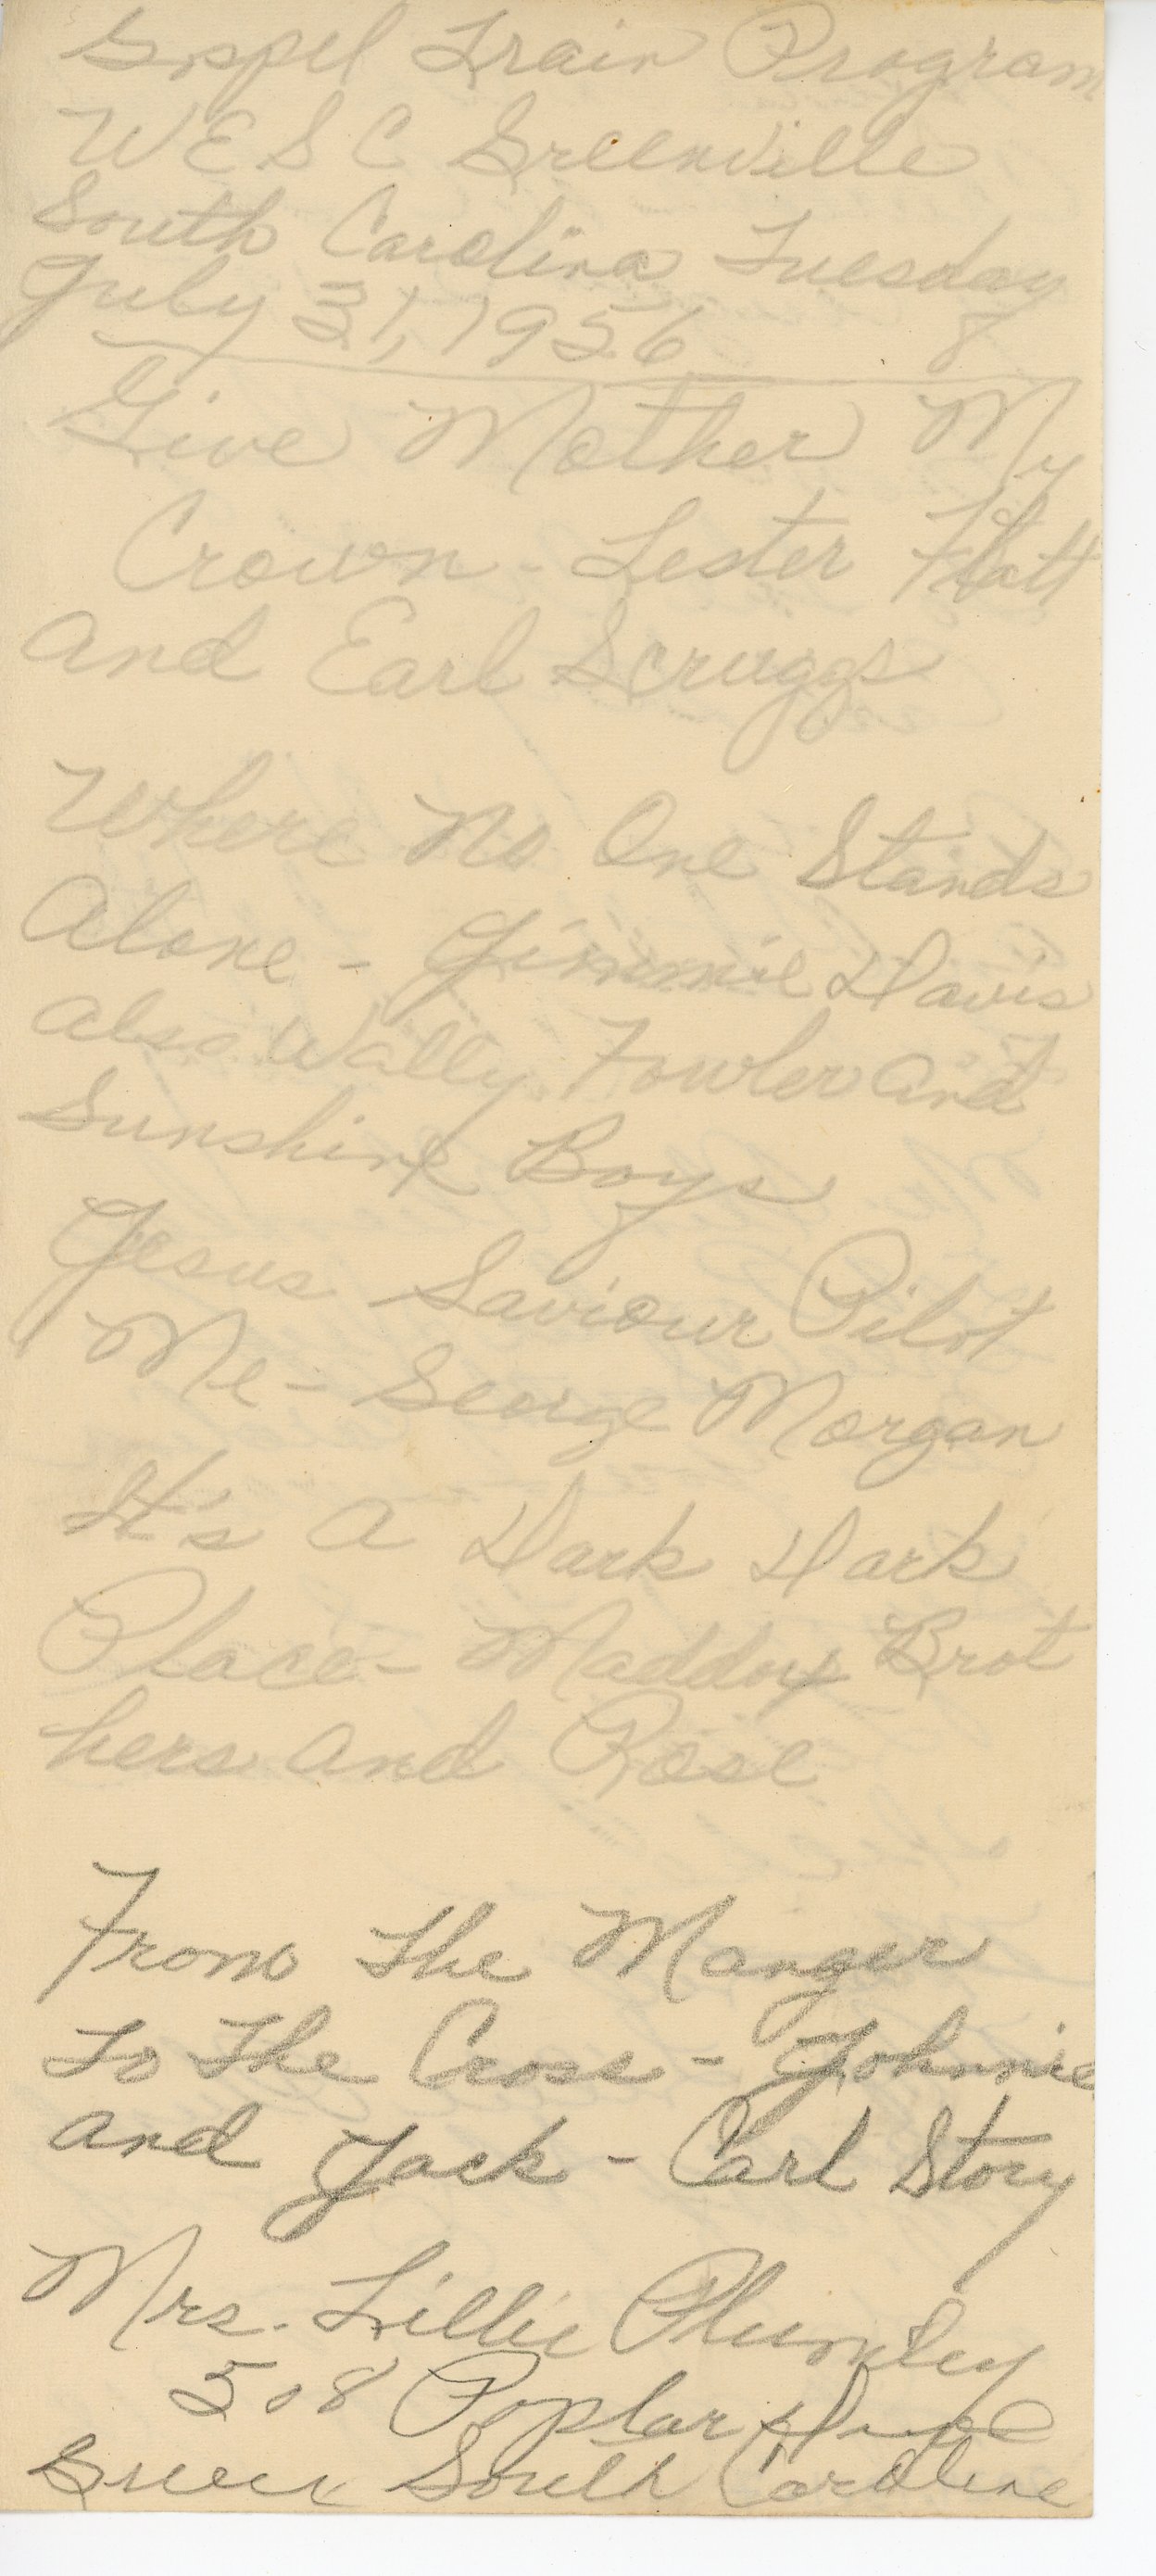 Gospel Train Program
WESC Greenville
South Carolina Tuesday
July 31, 1956 8
Give Mother My
Crown - Lester Flatt
and Earl Scruggs
Where No One Stands
Alone - Jimmie Davis
also Wally Fowler and
Sunshine Boys
Jesus Saviour Pilot
Me - George Morgan
It's A Dark Dark
Place - Maddox Brot
hers and Rose
From The Manger
To The Cross - Johnnie
and Jack - Carl Story
Mrs. Lillie Plumley
508 Poplar Drive
Greer South Carolina